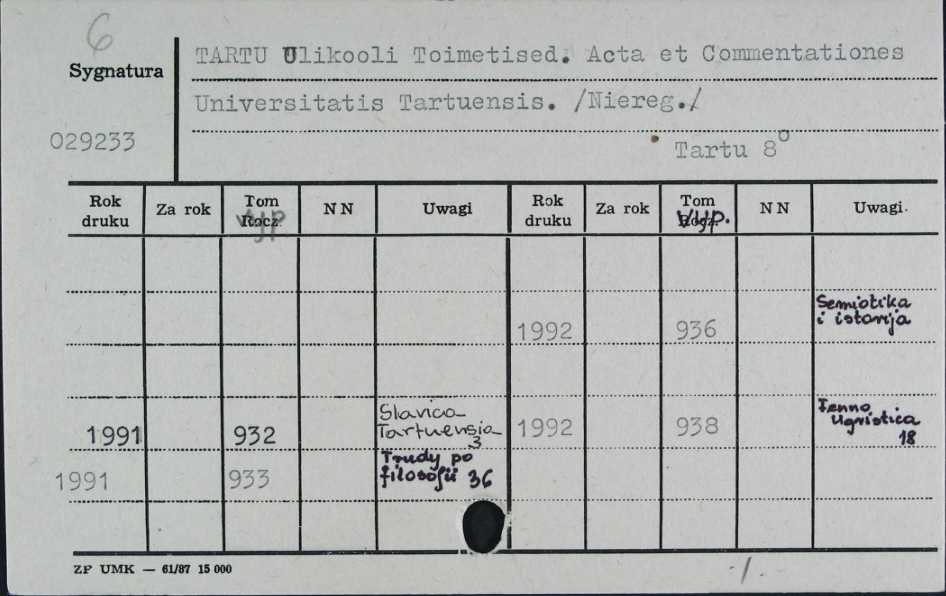 6
Sygnatura
TARTU Ulikooli Toimetised. Acta et Commentationes
Universitatis Tartuensis. /Niereg./
029233
Tartu 8°
Rok druku Za rok Tom Rocz. Vyp NN Uwagi Rok druku Za rok Tom Rocz. Vyp. NN Uwagi
1992 936 Semiotika
i istorija
1991 932 Slavica
Tartuensia
3
1992 938 Fenno
Ugristica
18
1991 933 Trudy po
filosofii 36
ZP UMK — 61/87 15 000
-/-